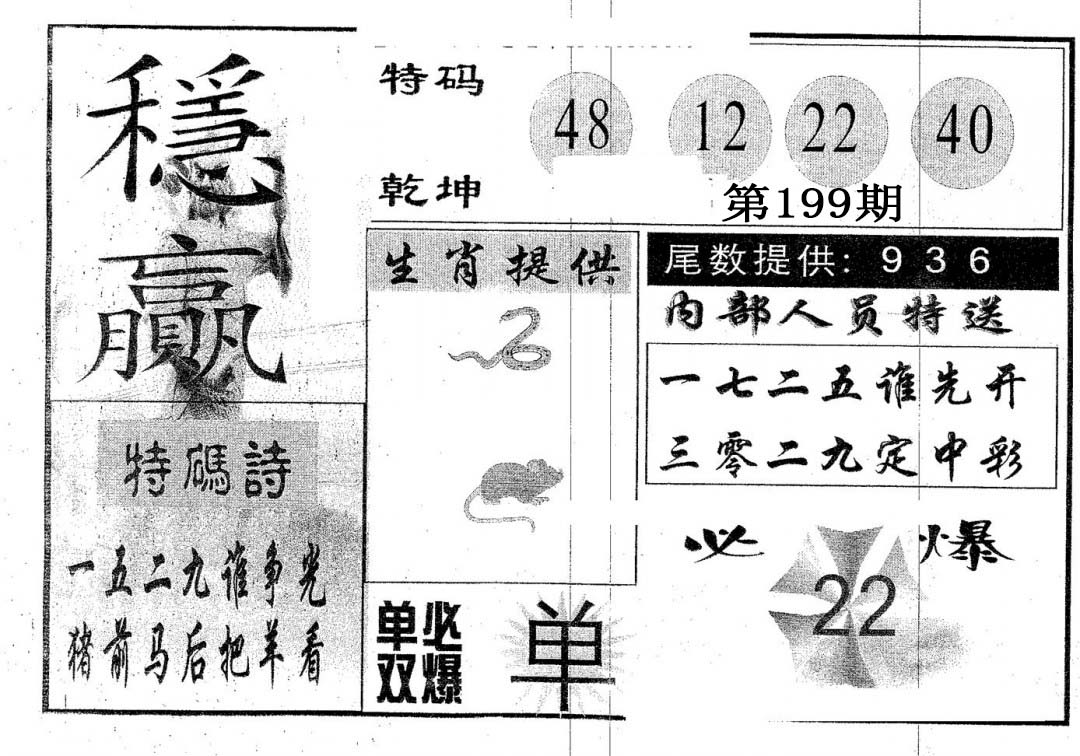 穩赢
特码
乾坤
48 12 22 40
第199期
生肖提供
尾数提供: 9 3 6
内部人员特送
一七二五谁先开
三零二九定中彩
特碼詩
一五二九谁争光
猪前马后把羊看
单双
必爆
单
必爆
22